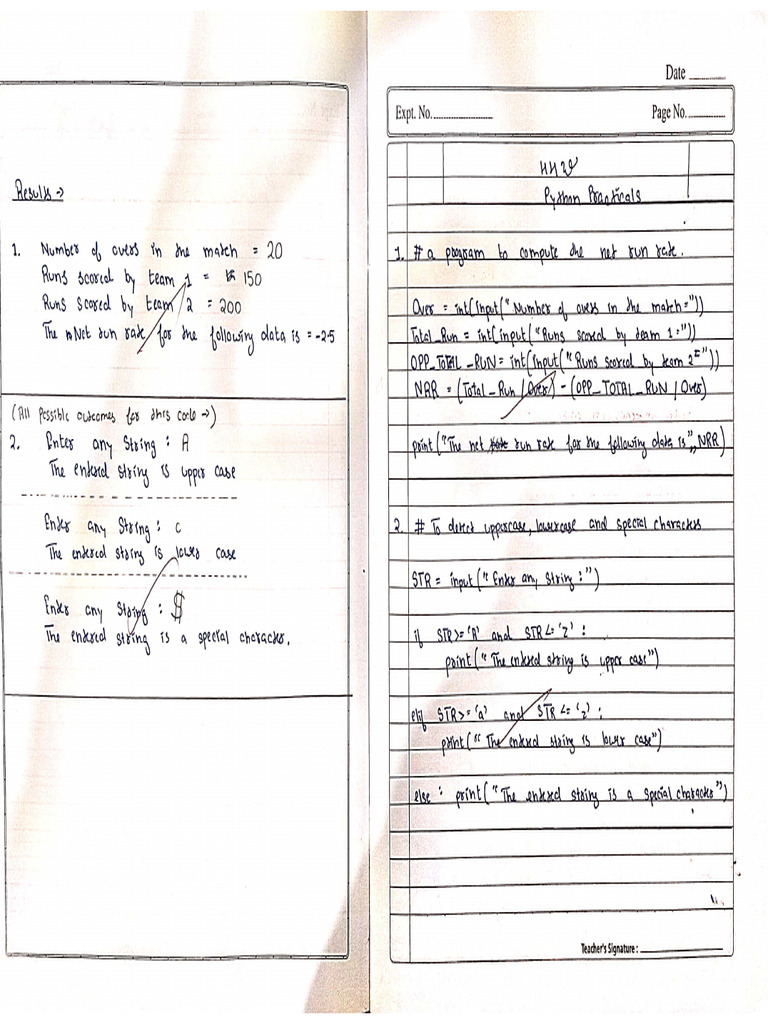 Results →
1. Number of overs in the match = 20
Runs scored by team 1 = 150
Runs scored by team 2 = 200
The Net run rate for the following data is = -2.5
(All possible outcomes for this code →)
2. Enter any String : A
The entered string is upper case
Enter any String : c
The entered string is lower case
Enter any String : $
The entered string is a special character.
Date
Expt. No.
Page No.
Python Practicals
1. # a program to compute the net run rate.
Over = int(input("Number of overs in the match="))
Total_Run = int(input("Runs scored by team 1:="))
OPP_TOTAL_RUN = int(input("Runs scored by team 2="))
NRR = (Total_Run / Over) - (OPP_TOTAL_RUN / Over)
print("The net run rate for the following data is",,NRR)
2. # To detect uppercase, lowercase and special character
STR = input("Enter any String :")
if STR>='A' and STR<='Z' :
print("The entered string is upper case")
elif STR>='a' and STR<='z' :
print("The entered string is lower case")
else : print("The entered string is a special character")
Teacher's Signature :